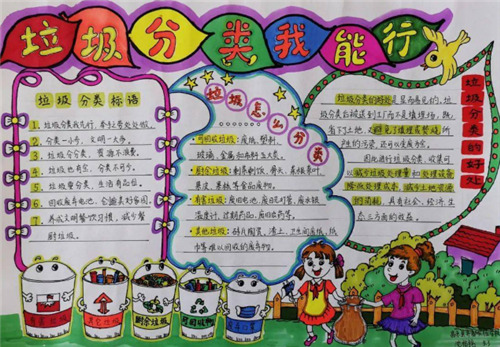 垃圾分类我能行
垃圾分类标语
1、垃圾分类我先行，举手之劳处处做。
2、分类一小步，文明一大步。
3、垃圾分分类，资源不浪费。
4、垃圾也有家，分类不可少。
5、垃圾要分类，生活有品位。
6、回收废旧电池，公益美好家园。
7、养成文明餐饮习惯，减少餐
厨垃圾。
垃圾怎么分类
可回收垃圾：废纸、塑料、
玻璃、金属和布料五大类。
厨余垃圾：剩菜剩饭、骨头、菜根菜叶、
果皮、果核等食品废物。
有害垃圾：废旧电池、废日光灯管、废水银
温度计、过期药品、废油漆等。
其他垃圾：砖瓦陶瓷、渣土、卫生间废纸、纸
巾等难以回收的废弃物。
垃圾分类的好处
垃圾分类的好处是显而易见的，垃
圾分类后被送到工厂而不是填埋场，既
省下了土地，又避免了填埋或焚烧所
产生的污染，还可以变废为宝。
因此进行垃圾分类，收集可
以减少垃圾处理量和处理设备，
降低处理成本，减少土地资源
的消耗，具有社会、经济、生
态三方面的效益。
厨余垃圾
可回收物